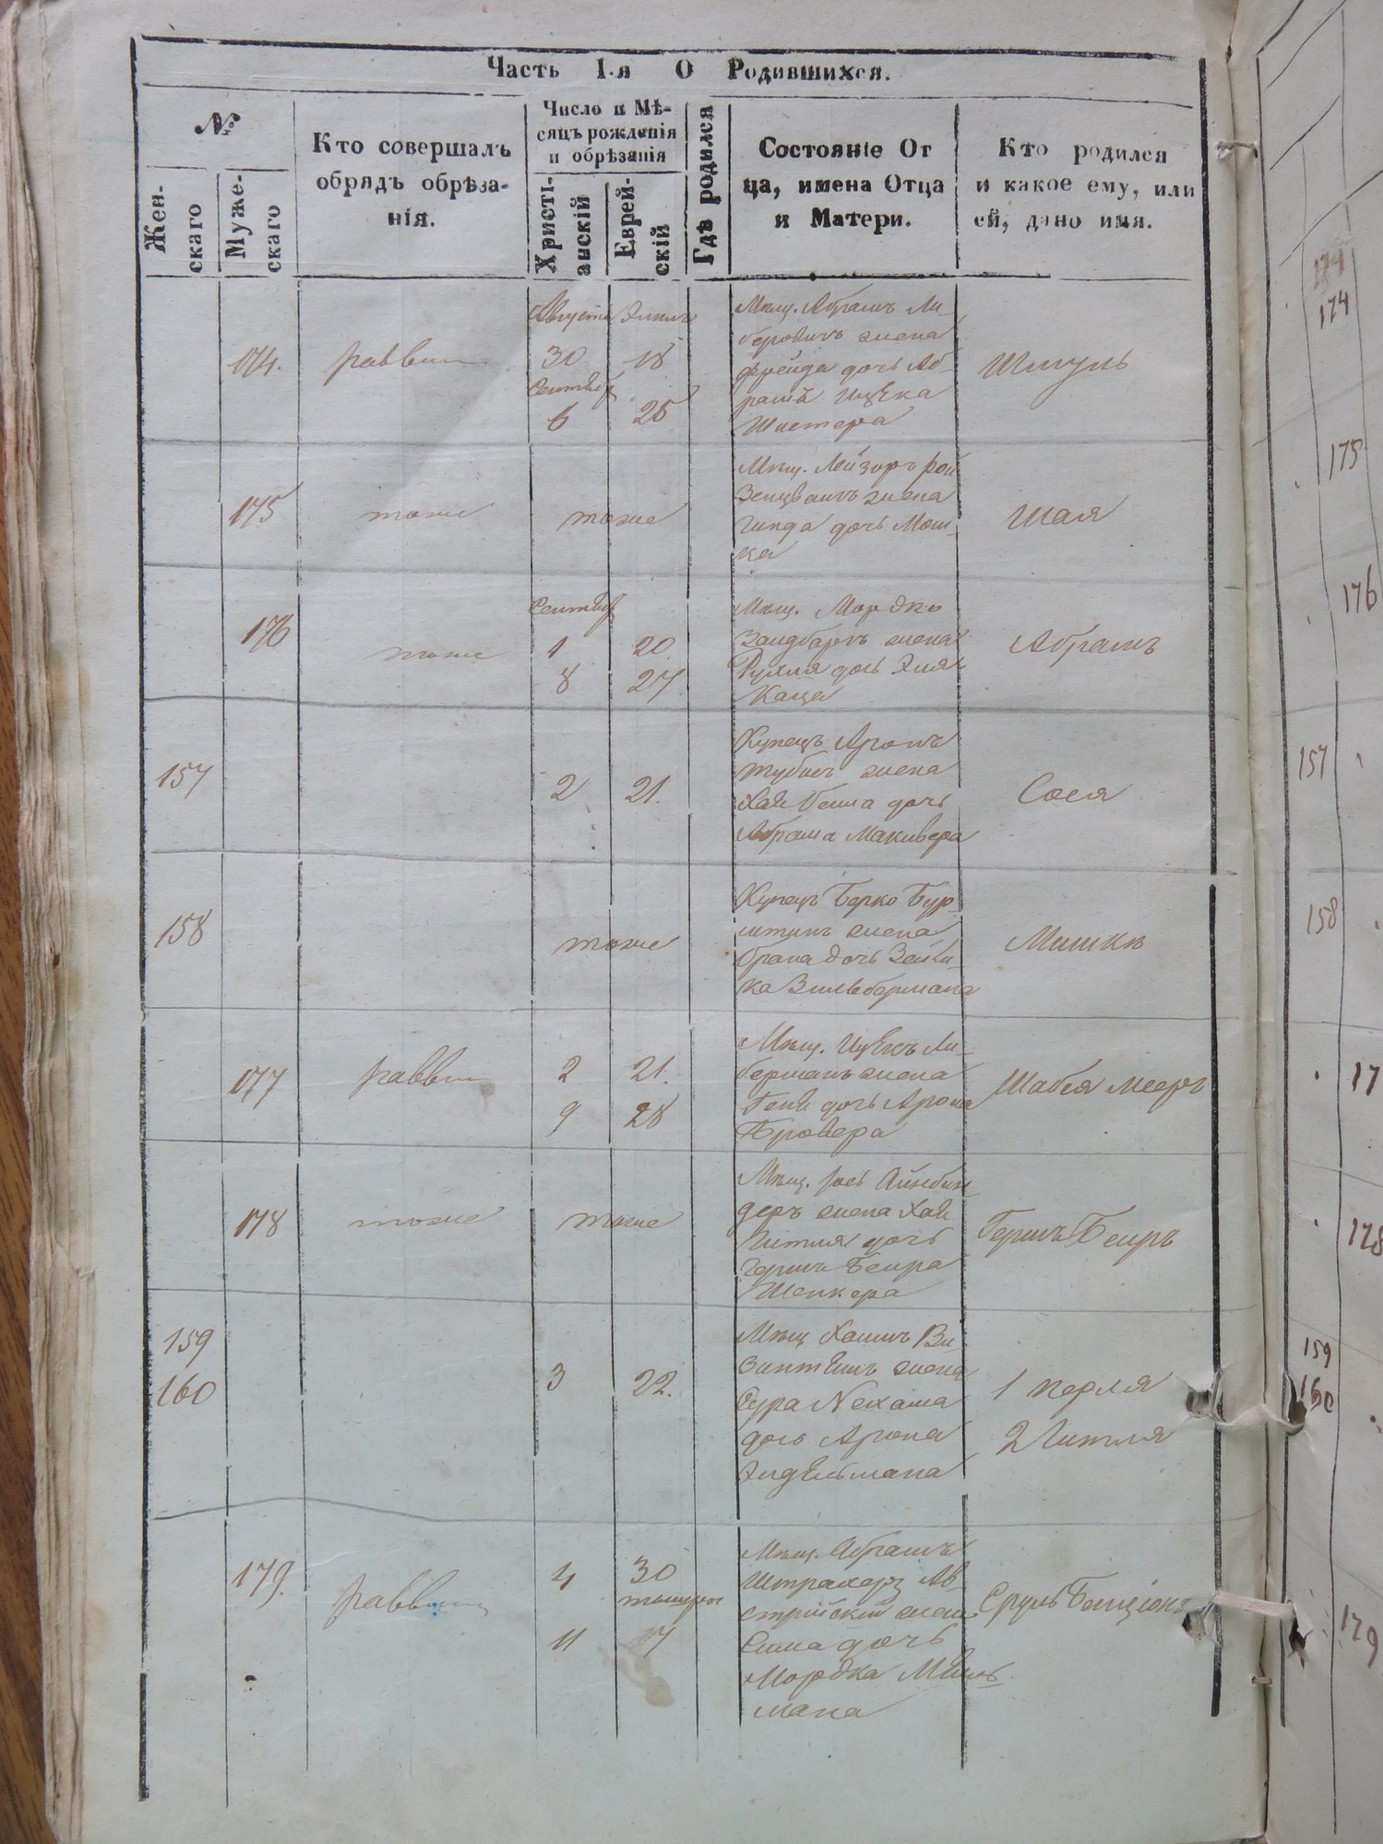 Часть 1-я О Родившихся.
№
Жен-
скаго
Муже-
скаго
Кто совершалъ
обрядъ обрѣза-
нія.
Число и Мѣ-
сяцъ рожденія
и обрѣзанія
Христі-
анскій
Еврей-
скій
Гдѣ родился
Состояніе От
ца, имена Отца
и Матери.
Кто родился
и какое ему, или
ей, дано имя.
174.
раввин
Августа
30
Сентябр
6
18
25
Мѣщ. Абрамъ Ли-
беровичъ жена
Фрейда дочь Аб-
рамъ Ицека
Шистера
Шмуль
175
тоже
тоже
Мѣщ. Лейзоръ Рой
Зенцвангъ жена
Гинда дочь Мош-
ка
Шая
176
тоже
Сентябр
1 20
8 27
Мѣщ. Мордко
Зандбергъ жена
Рухля дочь Эля
Каца
Абрамъ
157
2 21.
Купецъ Аронъ
жена
Хая Бейла дочь
Абрама Макивера
Сося
158
тоже
Купецъ Берко Бур-
штинъ жена
Брана дочь Зейли-
ка Зильбермана
177
раввин
2 21.
9 28
Мѣщ. Ицекъ Ли-
берманъ жена
дочь Арона
Бровера
Шабся Мееръ
178
тоже
тоже
Мѣщ. Іось Айнбин-
деръ жена Хая
Гитля дочь
Гершъ Беира
Шенкера
Гершъ Беиръ
159
160
3 22.
Мѣщ Хаимъ Ви-
жена
Сура Нехама
дочь Арона
Эйдельмана
1 Перля
2 Гитля
179.
раввин
4 30
11 7
Мѣщ. Абрамъ
Штрахеръ Ав
стрійскій жена
Сима дочь
Мордка
мана
Сруль Бенціонъ
174
174
175
176
157
158
17
178
159
160
179